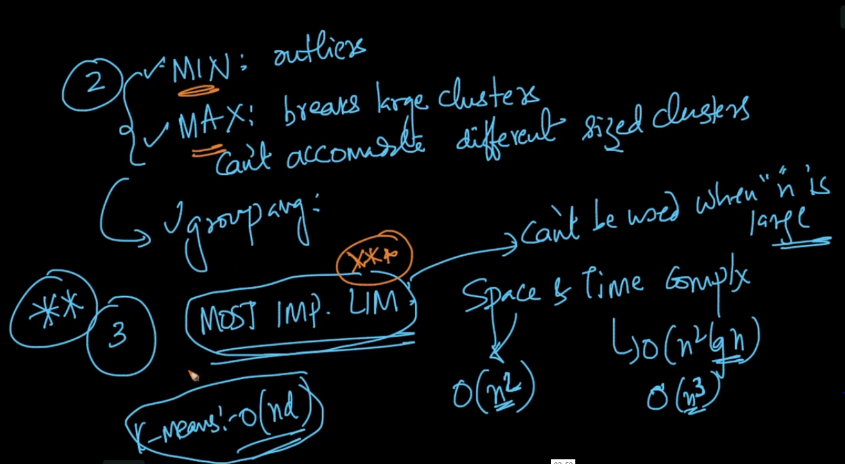 2 MIN: outliers
MAX: breaks large clusters
Can't accomodate different sized clusters
group avg:
Can't be used when "n" is large
***
** 3 MOST IMP. LIM
Space & Time Complx
O(n² lg n)
O(n²) O(n³)
K-means:- O(nd)